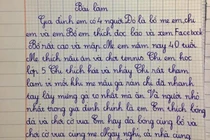 Bài làm
Gia đình em có 4 người Đó là bố mẹ em, chị
em và em Bố em thích đọc báo và xem Facebook
Bố rất cao và mập Mẹ em năm nay 40 tuổi
Mẹ thích nấu ăn và chơi tennis Chị em học
lớp 5 Chị thích hát và nhảy Chị rất thân
làm vì mỗi khi mẹ nấu gà rán chị đã nhanh
tay lấy miếng gà to nhất mà ăn Và người nhỏ
nhất trong gia đình chính là em Em thích bóng
đá và chơi cờ vua Em hay đá bóng cùng bố và
chơi cờ vua cùng mẹ Ngày nghỉ, cả nhà cùng